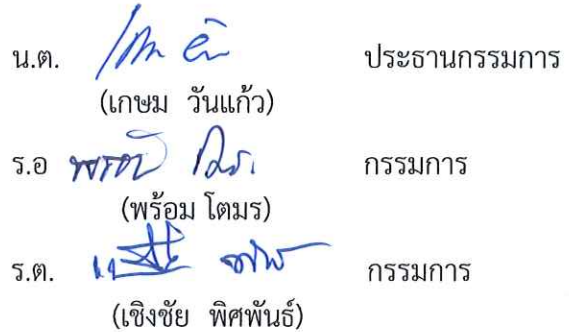 น.ต. ประธานกรรมการ
(เกษม วันแก้ว)
ร.อ กรรมการ
(พร้อม โตมร)
ร.ต. กรรมการ
(เชิงชัย พิศพันธ์)